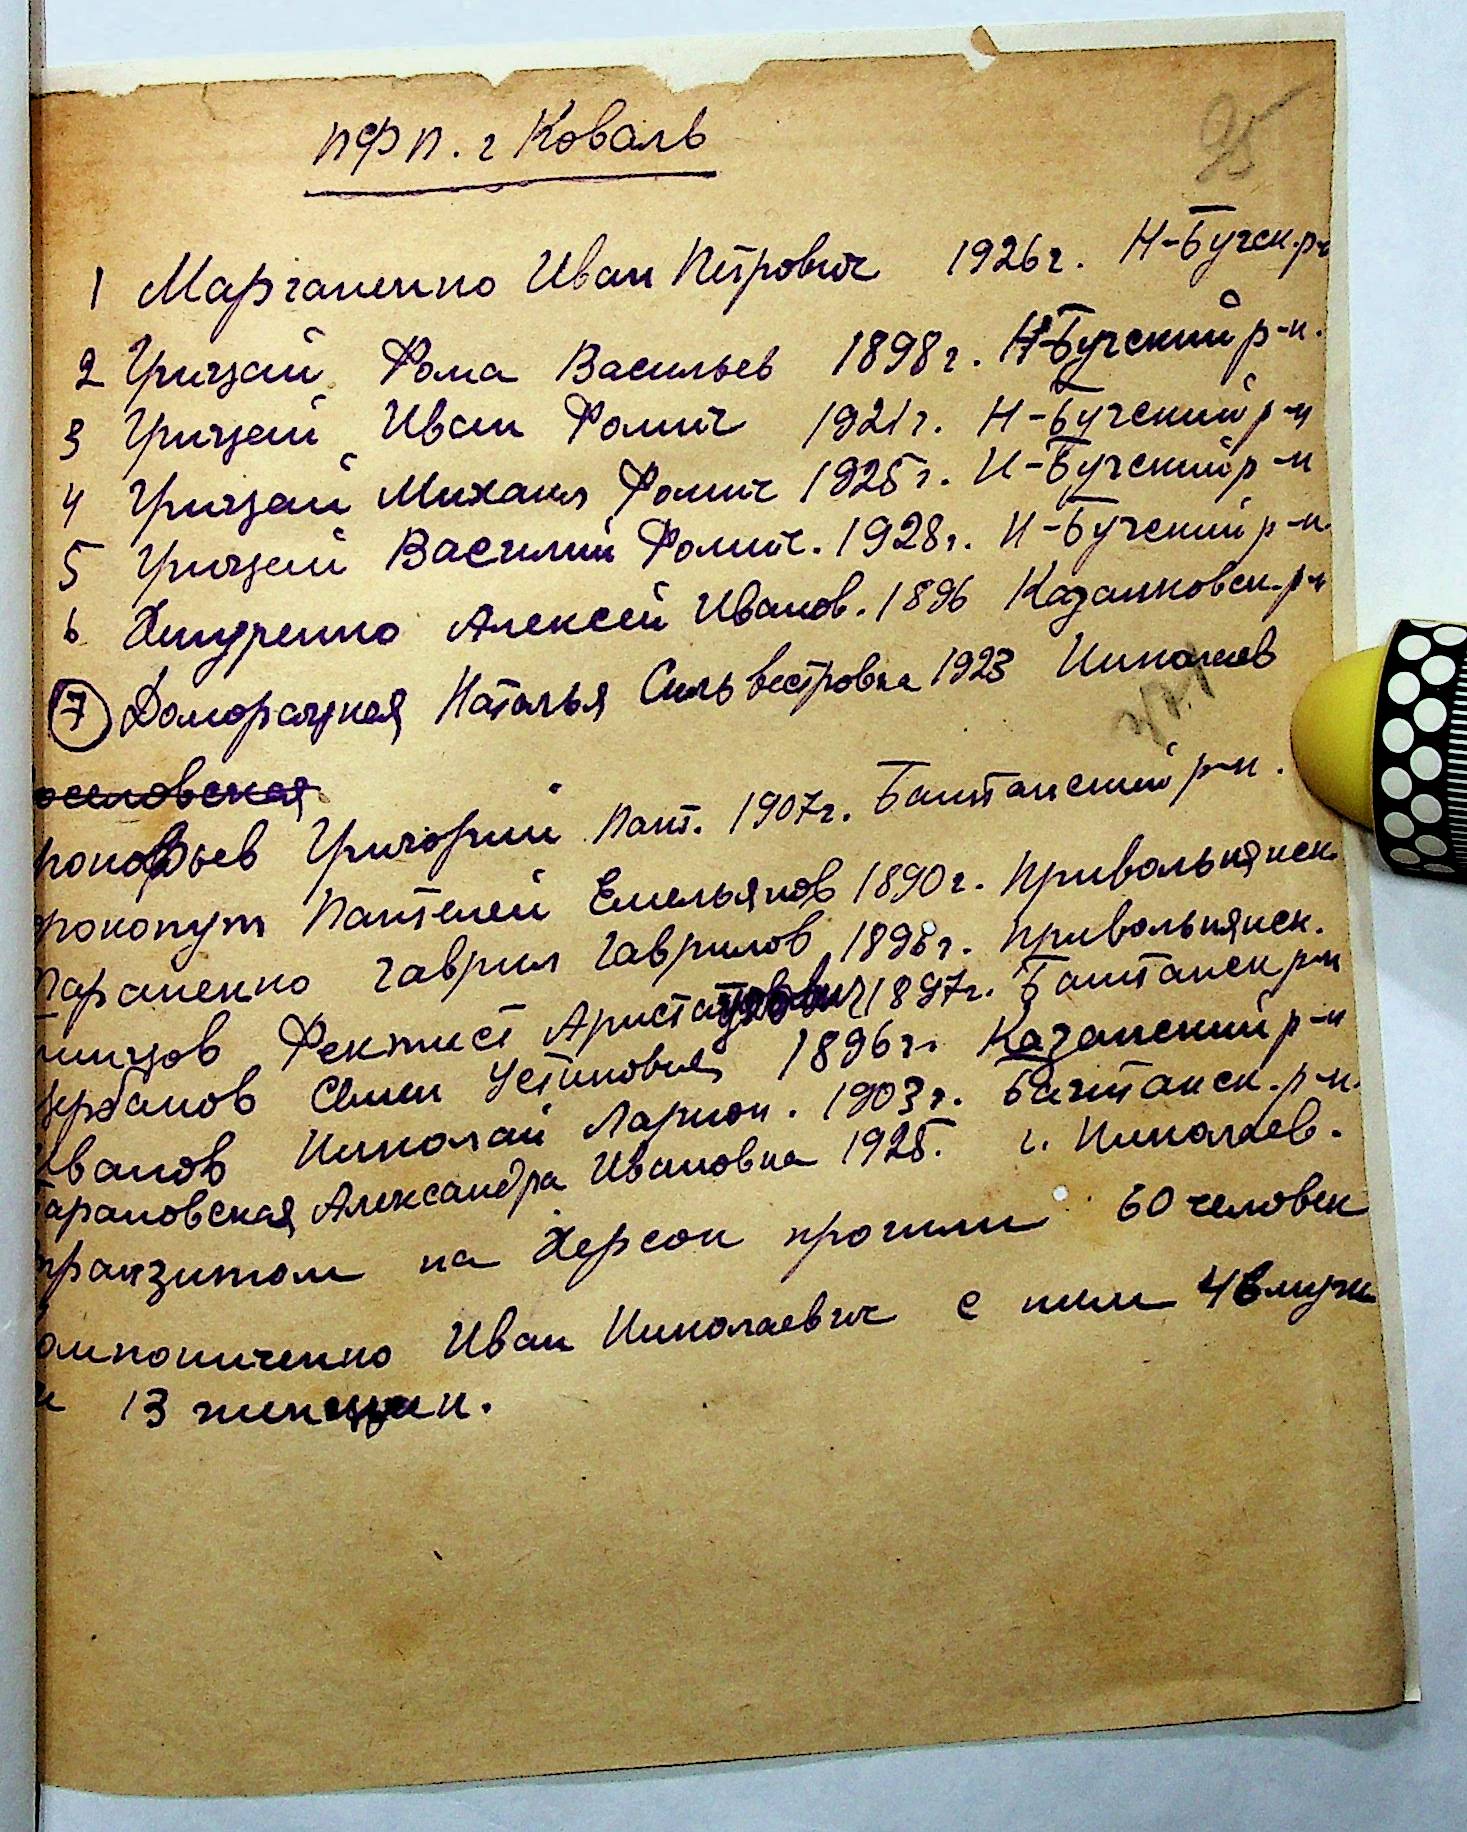 ПФП. г Коваль
95
1 Марганенко Иван Петрович 1926г. Н-Бугск. р-н
2 Грицай Фома Васильев 1898г. Н-Бугский р-н.
3 Грицай Иван Фомич 1921г. Н-Бугский р-н
4 Грицай Михаил Фомич 1925г. Н-Бугский р-н
5 Грицай Василий Фомич. 1928г. Н-Бугский р-н.
6 Алексей Иванов. 1896 Казанковск. р-н
7 Доморацкая Наталья Сильвестровна 1923 Николаев
рокофьев Григорий Пант. 1907г. Баштанский р-н.
Пантелей Емельянов 1890г. Привольнянск.
Гаврил Гаврилов 1898г. Привольнянск.
1897г. Баштанск р-н
ербанов Семен Устинович 1896г. Казанский р-н
ванов Николай Ларион. 1903г. Баштанск. р-н.
арановская Александра Ивановна 1925. г. Николаев.
транзитом на Херсон прошли 60 человек
Иван Николаевич с ним 46 мужч
и 13 женщин.